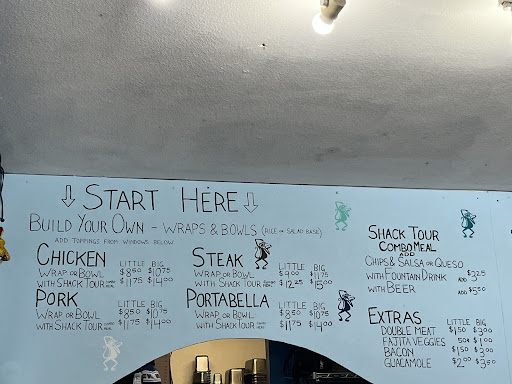 START HERE
BUILD YOUR OWN - WRAPS & BOWLS (RICE OR SALAD BASE)
ADD TOPPINGS FROM WINDOWS BELOW
CHICKEN LITTLE BIG
WRAP OR BOWL $8.50 $10.75
WITH SHACK TOUR $11.75 $14.00
PORK LITTLE BIG
WRAP OR BOWL $8.50 $10.75
WITH SHACK TOUR $11.75 $14.00
STEAK LITTLE BIG
WRAP OR BOWL $9.00 $11.75
WITH SHACK TOUR $12.25 $15.00
PORTABELLA LITTLE BIG
WRAP OR BOWL $8.50 $10.75
WITH SHACK TOUR $11.75 $14.00
SHACK TOUR
COMBO MEAL
ADD
CHIPS & SALSA OR QUESO
WITH FOUNTAIN DRINK ADD $3.25
WITH BEER ADD $5.50
EXTRAS LITTLE BIG
DOUBLE MEAT $1.50 $3.00
FAJITA VEGGIES 50¢ $1.00
BACON $1.50 $3.00
GUACAMOLE $2.00 $3.50